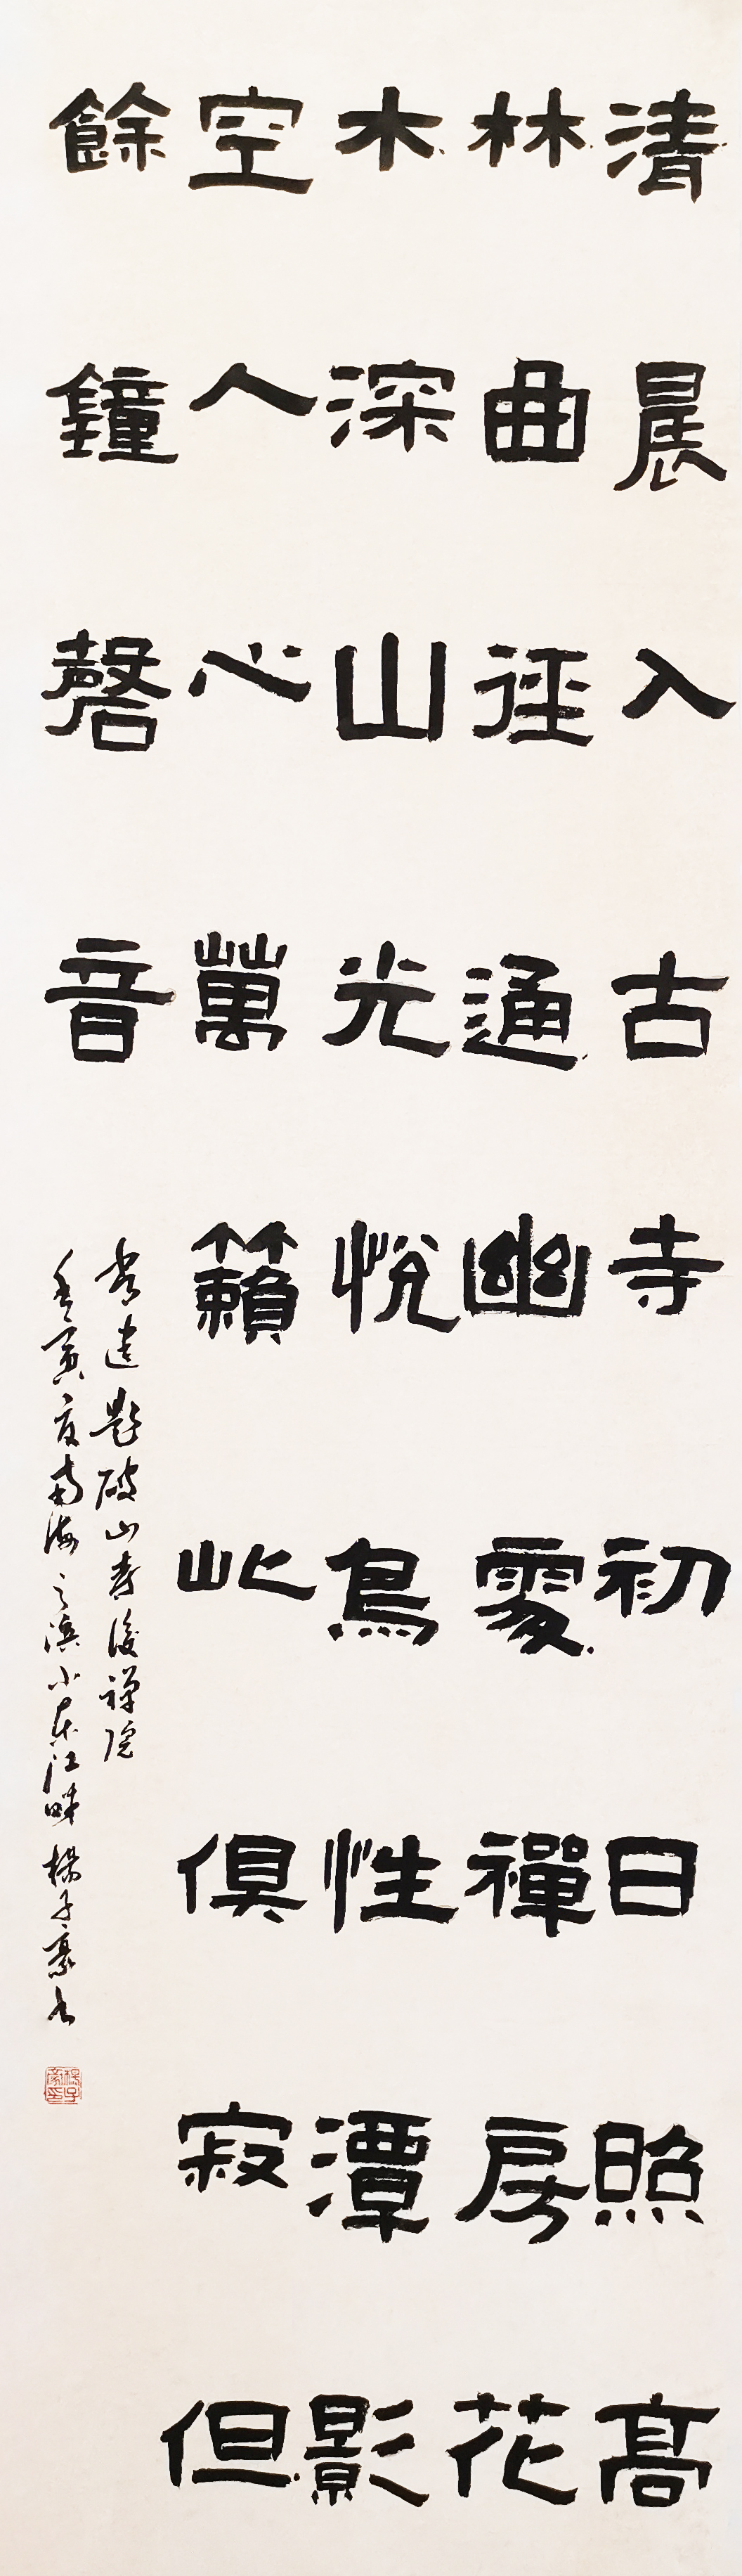 清晨入古寺初日照高
林曲徑通幽處禪房花
木深山光悅鳥性潭影
空人心萬籟此俱寂但
餘鐘磬音
常建題破山寺後禅院
壬寅夏南海之濱小東江畔楊子豪書
楊子豪印